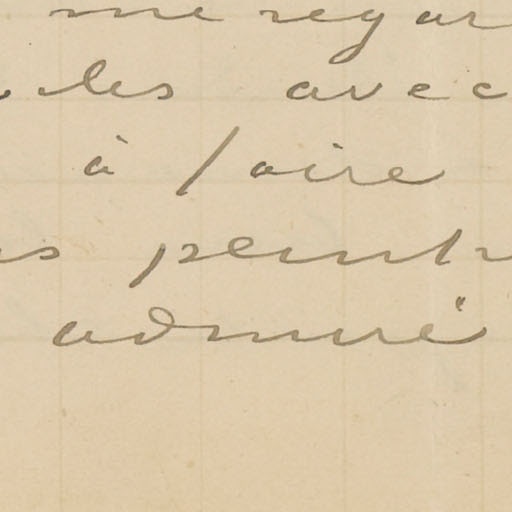 me regar
les avec
à faire
s peint
admiré